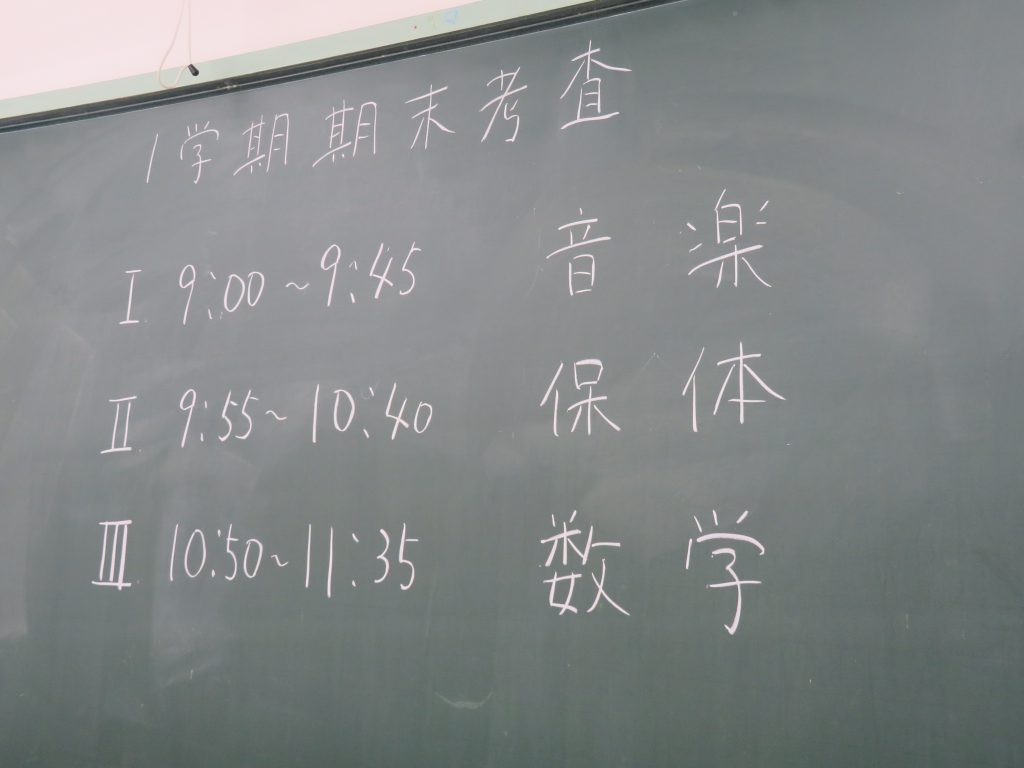 1学期期末考査
Ⅰ. 9:00~9:45 音楽
Ⅱ. 9:55~10:40 保体
Ⅲ. 10:50~11:35 数学